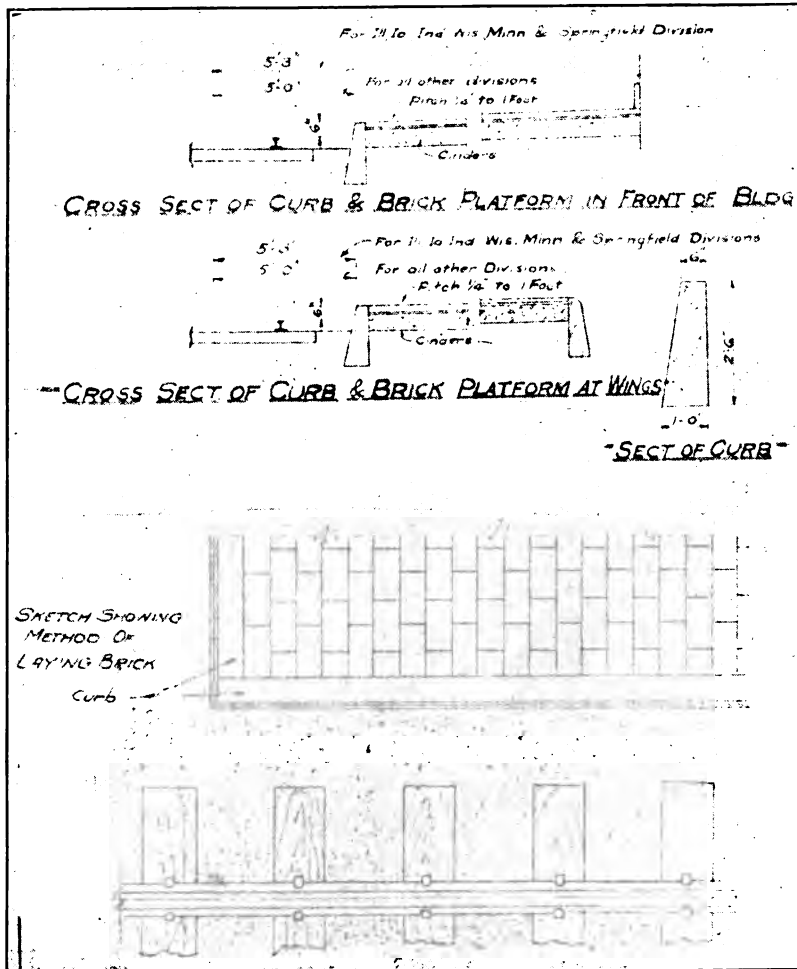 For Ill Io Ind Wis Minn & Springfield Division
5'-3"
5'-0"
For all other divisions
Pitch 1/4" to 1 Foot
6"
Cinders
CROSS SECT OF CURB & BRICK PLATFORM IN FRONT OF BLDG
5'-3"
For Ill Io Ind Wis. Minn & Springfield Divisions
5'-0"
For all other Divisions
Pitch 1/4" to 1 Foot
6"
6"
Cinders
2'6"
CROSS SECT OF CURB & BRICK PLATFORM AT WINGS
1'-0"
SECT OF CURB
SKETCH SHOWING
METHOD OF
LAYING BRICK
Curb